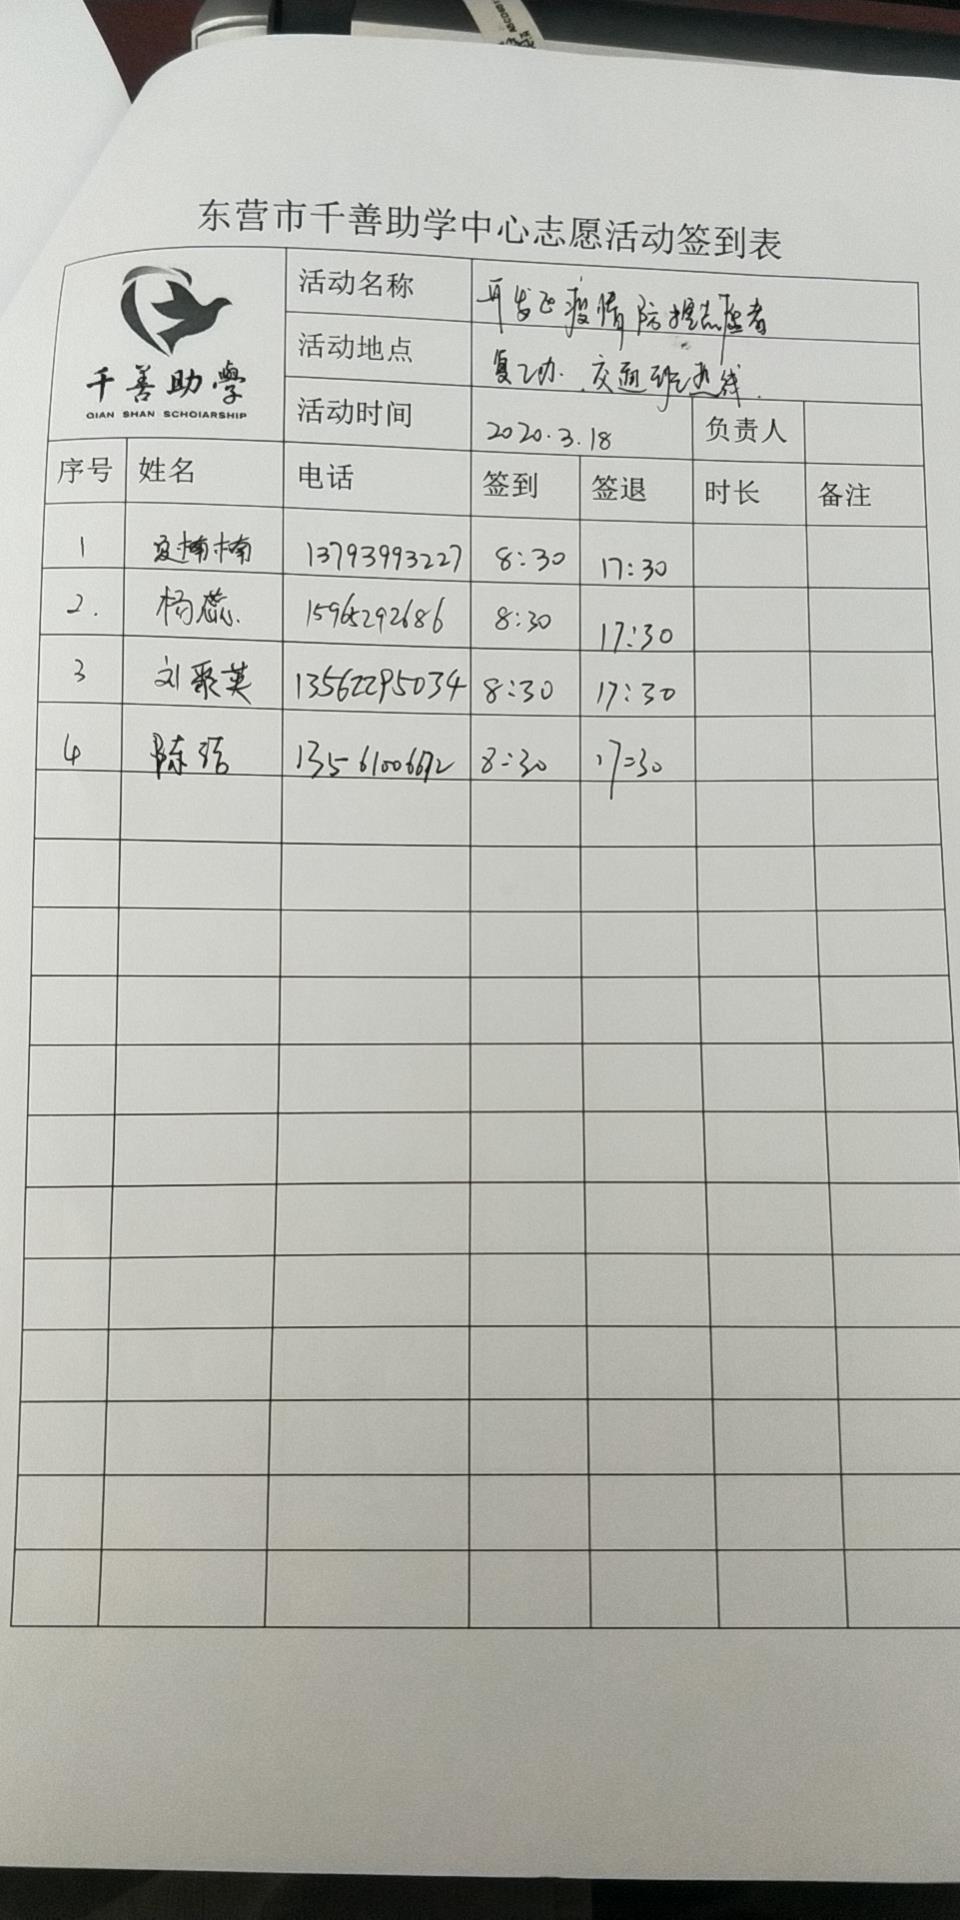 东营市千善助学中心志愿活动签到表
千善助學
QIAN SHAN SCHOlARSHIP
活动名称 开发区疫情防控志愿者
活动地点 复工办. 交通班热线.
活动时间 2020.3.18 负责人
序号 姓名 电话 签到 签退 时长 备注
1 楠楠 13793993227 8:30 17:30
2. 杨蕊. 15965292686 8:30 17:30
3 刘聚英 13562295034 8:30 17:30
4 陈 8:30 17:30